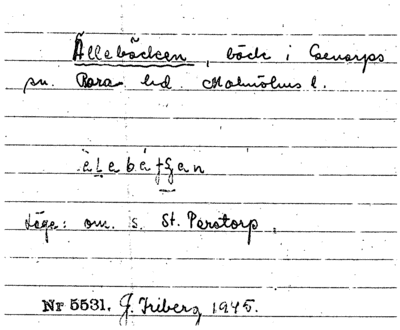 Ällebäcken, bäck i Genarps
sn. Bara hd. Malmöhus l.
Läge: om. s. St. Perstorp.
Nr 5531. J. Friberg, 1945.